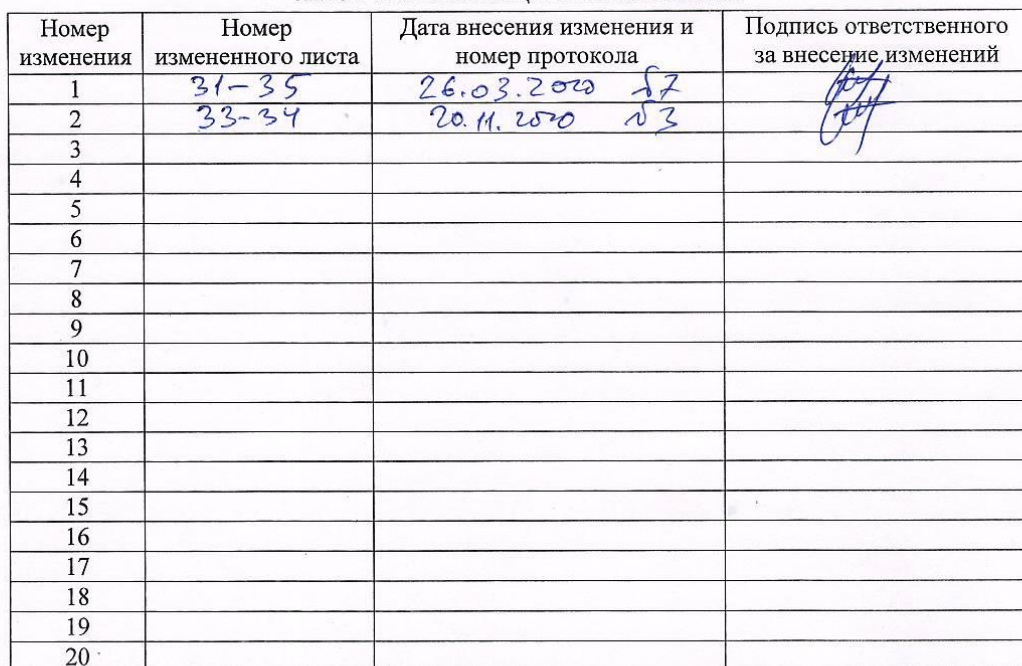 Номер изменения Номер измененного листа Дата внесения изменения и номер протокола Подпись ответственного за внесение изменений
1 31-35 26.03.2020 №7
2 33-34 20.11.2020 №3
3
4
5
6
7
8
9
10
11
12
13
14
15
16
17
18
19
20